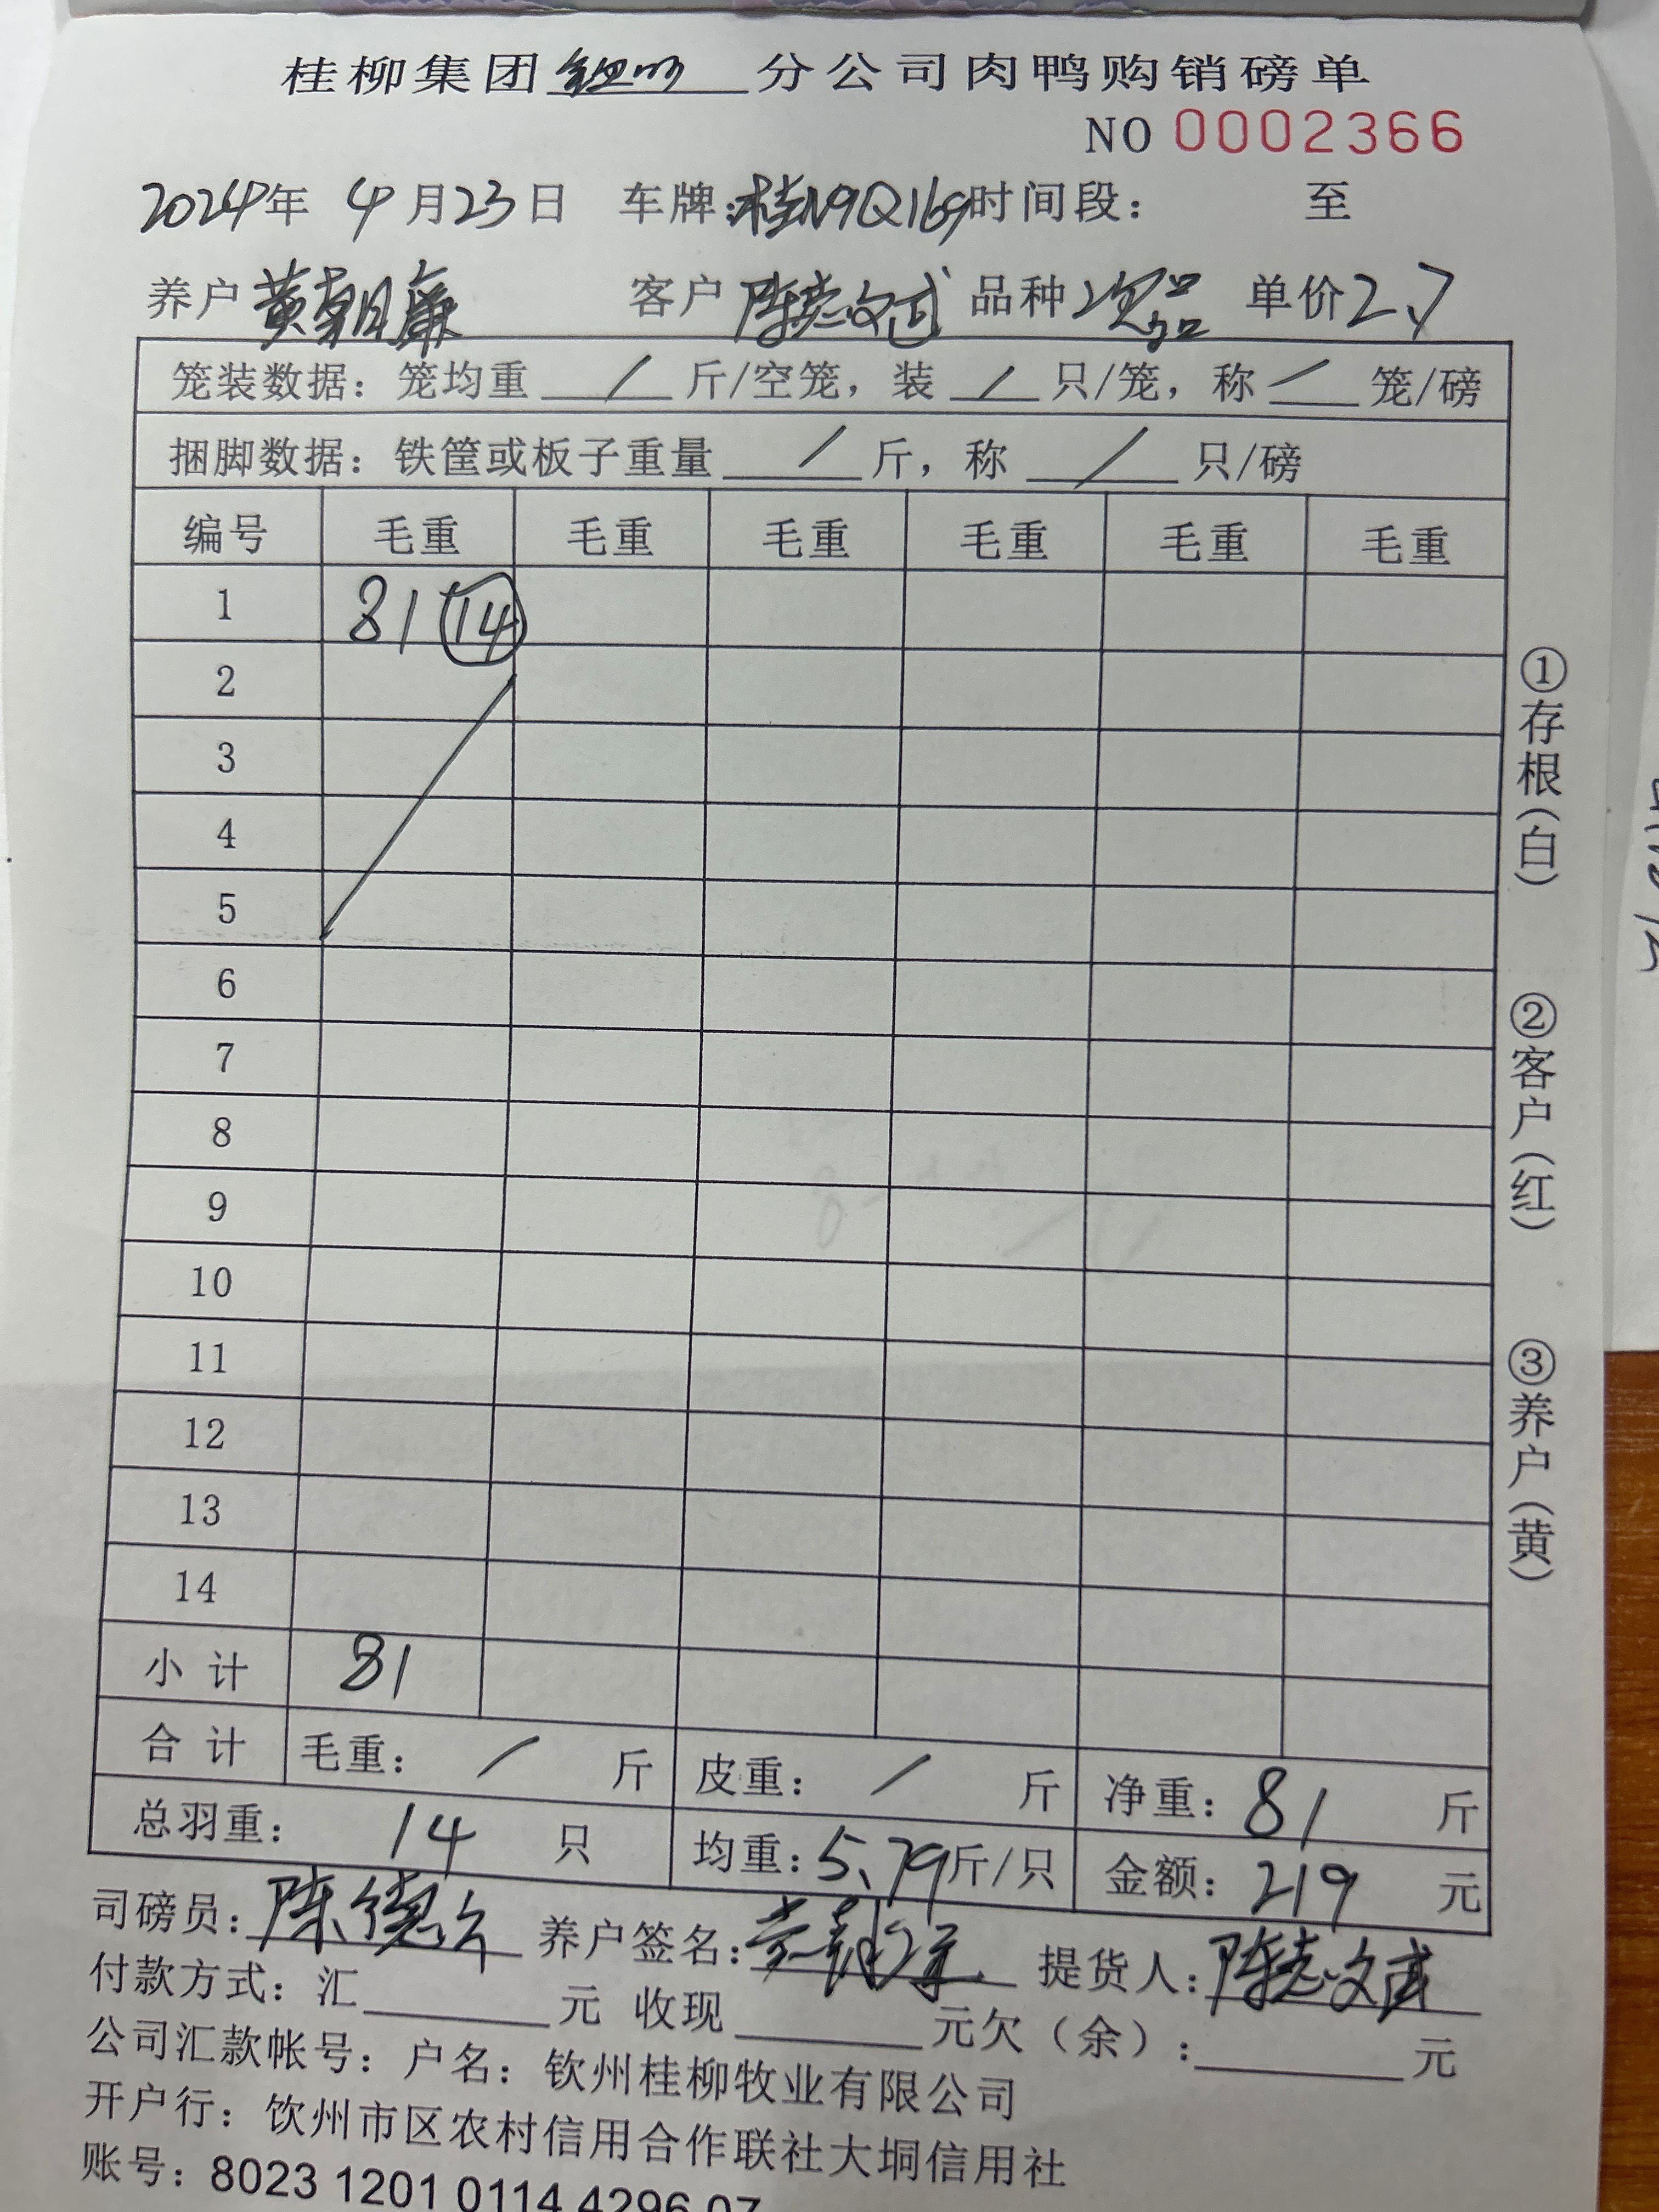 桂柳集团 分公司肉鸭购销磅单
NO 0002366
2024年 4月23日 车牌:桂N9Q169时间段: 至
养户 黄朝廉 客户 陈志武 品种 次品 单价2.7
笼装数据: 笼均重 / 斤/空笼, 装 / 只/笼, 称 / 笼/磅
捆脚数据: 铁筐或板子重量 / 斤, 称 / 只/磅
编号 毛重 毛重 毛重 毛重 毛重 毛重
1 81 14
2
3
4
5
6
7
8
9
10
11
12
13
14
小计 81
合计 毛重: / 斤 皮重: / 斤 净重: 81 斤
总羽重: 14 只 均重: 5.79斤/只 金额: 219 元
司磅员: 陈德 养户签名: 提货人: 陈志武
付款方式: 汇 元 收现 元欠(余): 元
公司汇款帐号: 户名: 钦州桂柳牧业有限公司
开户行: 饮州市区农村信用合作联社大垌信用社
账号: 8023 1201 0114 4296 07
①存根(白)
②客户(红)
③养户(黄)